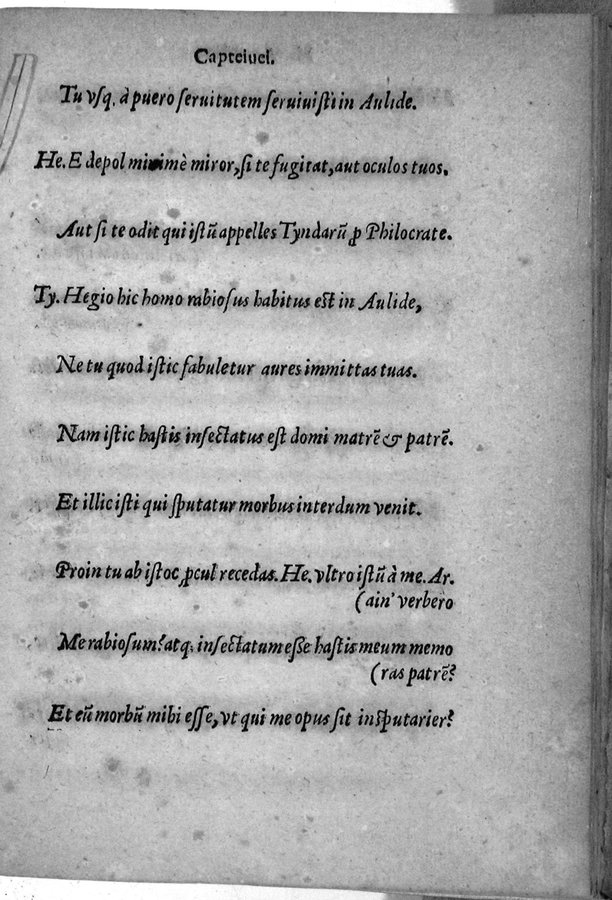 Capteiuei.
Tu vsq, à puero seruitutem seruiuisti in Aulide.
He. E depol minimè miror, si te fugitat, aut oculos tuos.
Aut si te odit qui istũ appelles Tyndarũ ꝓ Philocrate.
Ty. Hegio hic homo rabiosus habitus est in Aulide,
Ne tu quod istic fabuletur aures immittas tuas.
Nam istic hastis insectatus est domi matrẽ & patrẽ.
Et illic isti qui sputatur morbus interdum venit.
Proin tu ab istoc ꝓcul recedas. He. vltro istũ à me. Ar.
(ain' verbero
Me rabiosum? atq, insectatum esse hastis meum memo
(ras patrẽ?
Et eũ morbũ mihi esse, vt qui me opus sit insputarier?